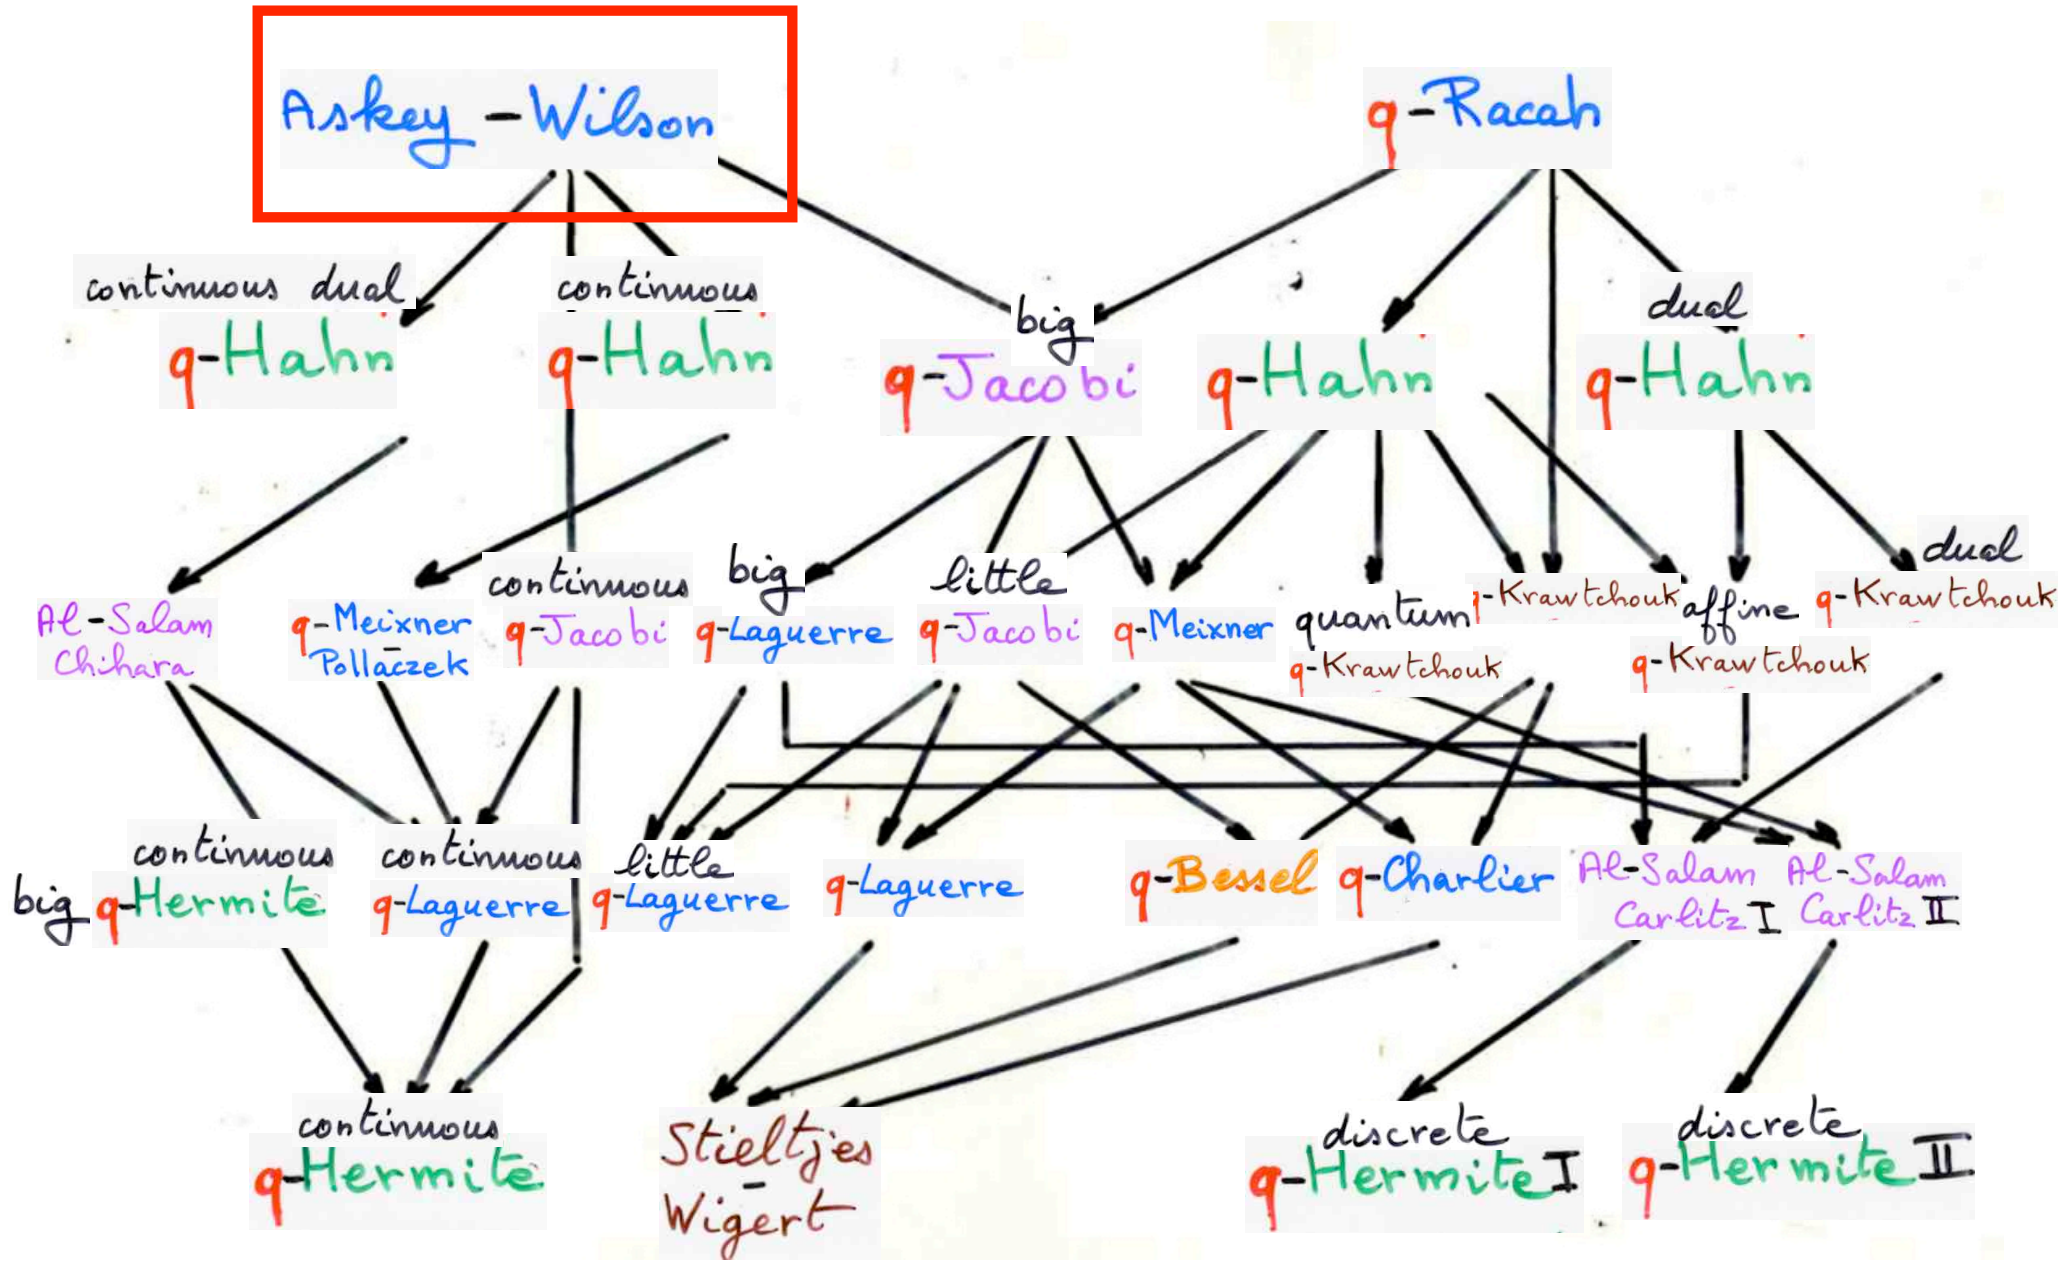 Askey-Wilson
q-Racah
continuous dual
q-Hahn
continuous
q-Hahn
big
q-Jacobi
q-Hahn
dual
q-Hahn
Al-Salam
Chihara
q-Meixner
-
Pollaczek
continuous
q-Jacobi
big
q-Laguerre
little
q-Jacobi
q-Meixner
quantum
q-Krawtchouk
q-Krawtchouk
affine
q-Krawtchouk
dual
q-Krawtchouk
continuous
big q-Hermite
continuous
q-Laguerre
little
q-Laguerre
q-Laguerre
q-Bessel
q-Charlier
Al-Salam
Carlitz I
Al-Salam
Carlitz II
continuous
q-Hermite
Stieltjes
-
Wigert
discrete
q-Hermite I
discrete
q-Hermite II